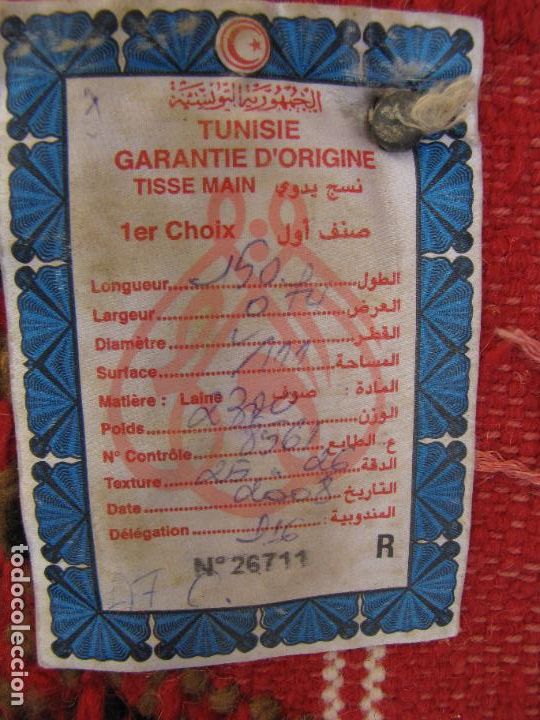 الجمهورية التونسية
TUNISIE
GARANTIE D'ORIGINE
TISSE MAIN نسج يدوي
1er Choix صنف أول
Longueur الطول
Largeur العرض
Diamètre القطر
Surface المساحة
Matière : Laine صوف : المادة
Poids 2320 الوزن
N° Contrôle ع. الطابع
Texture الدقة
Date 2008 التاريخ
Délégation المندوبية
N° 26711 R
todocoleccion